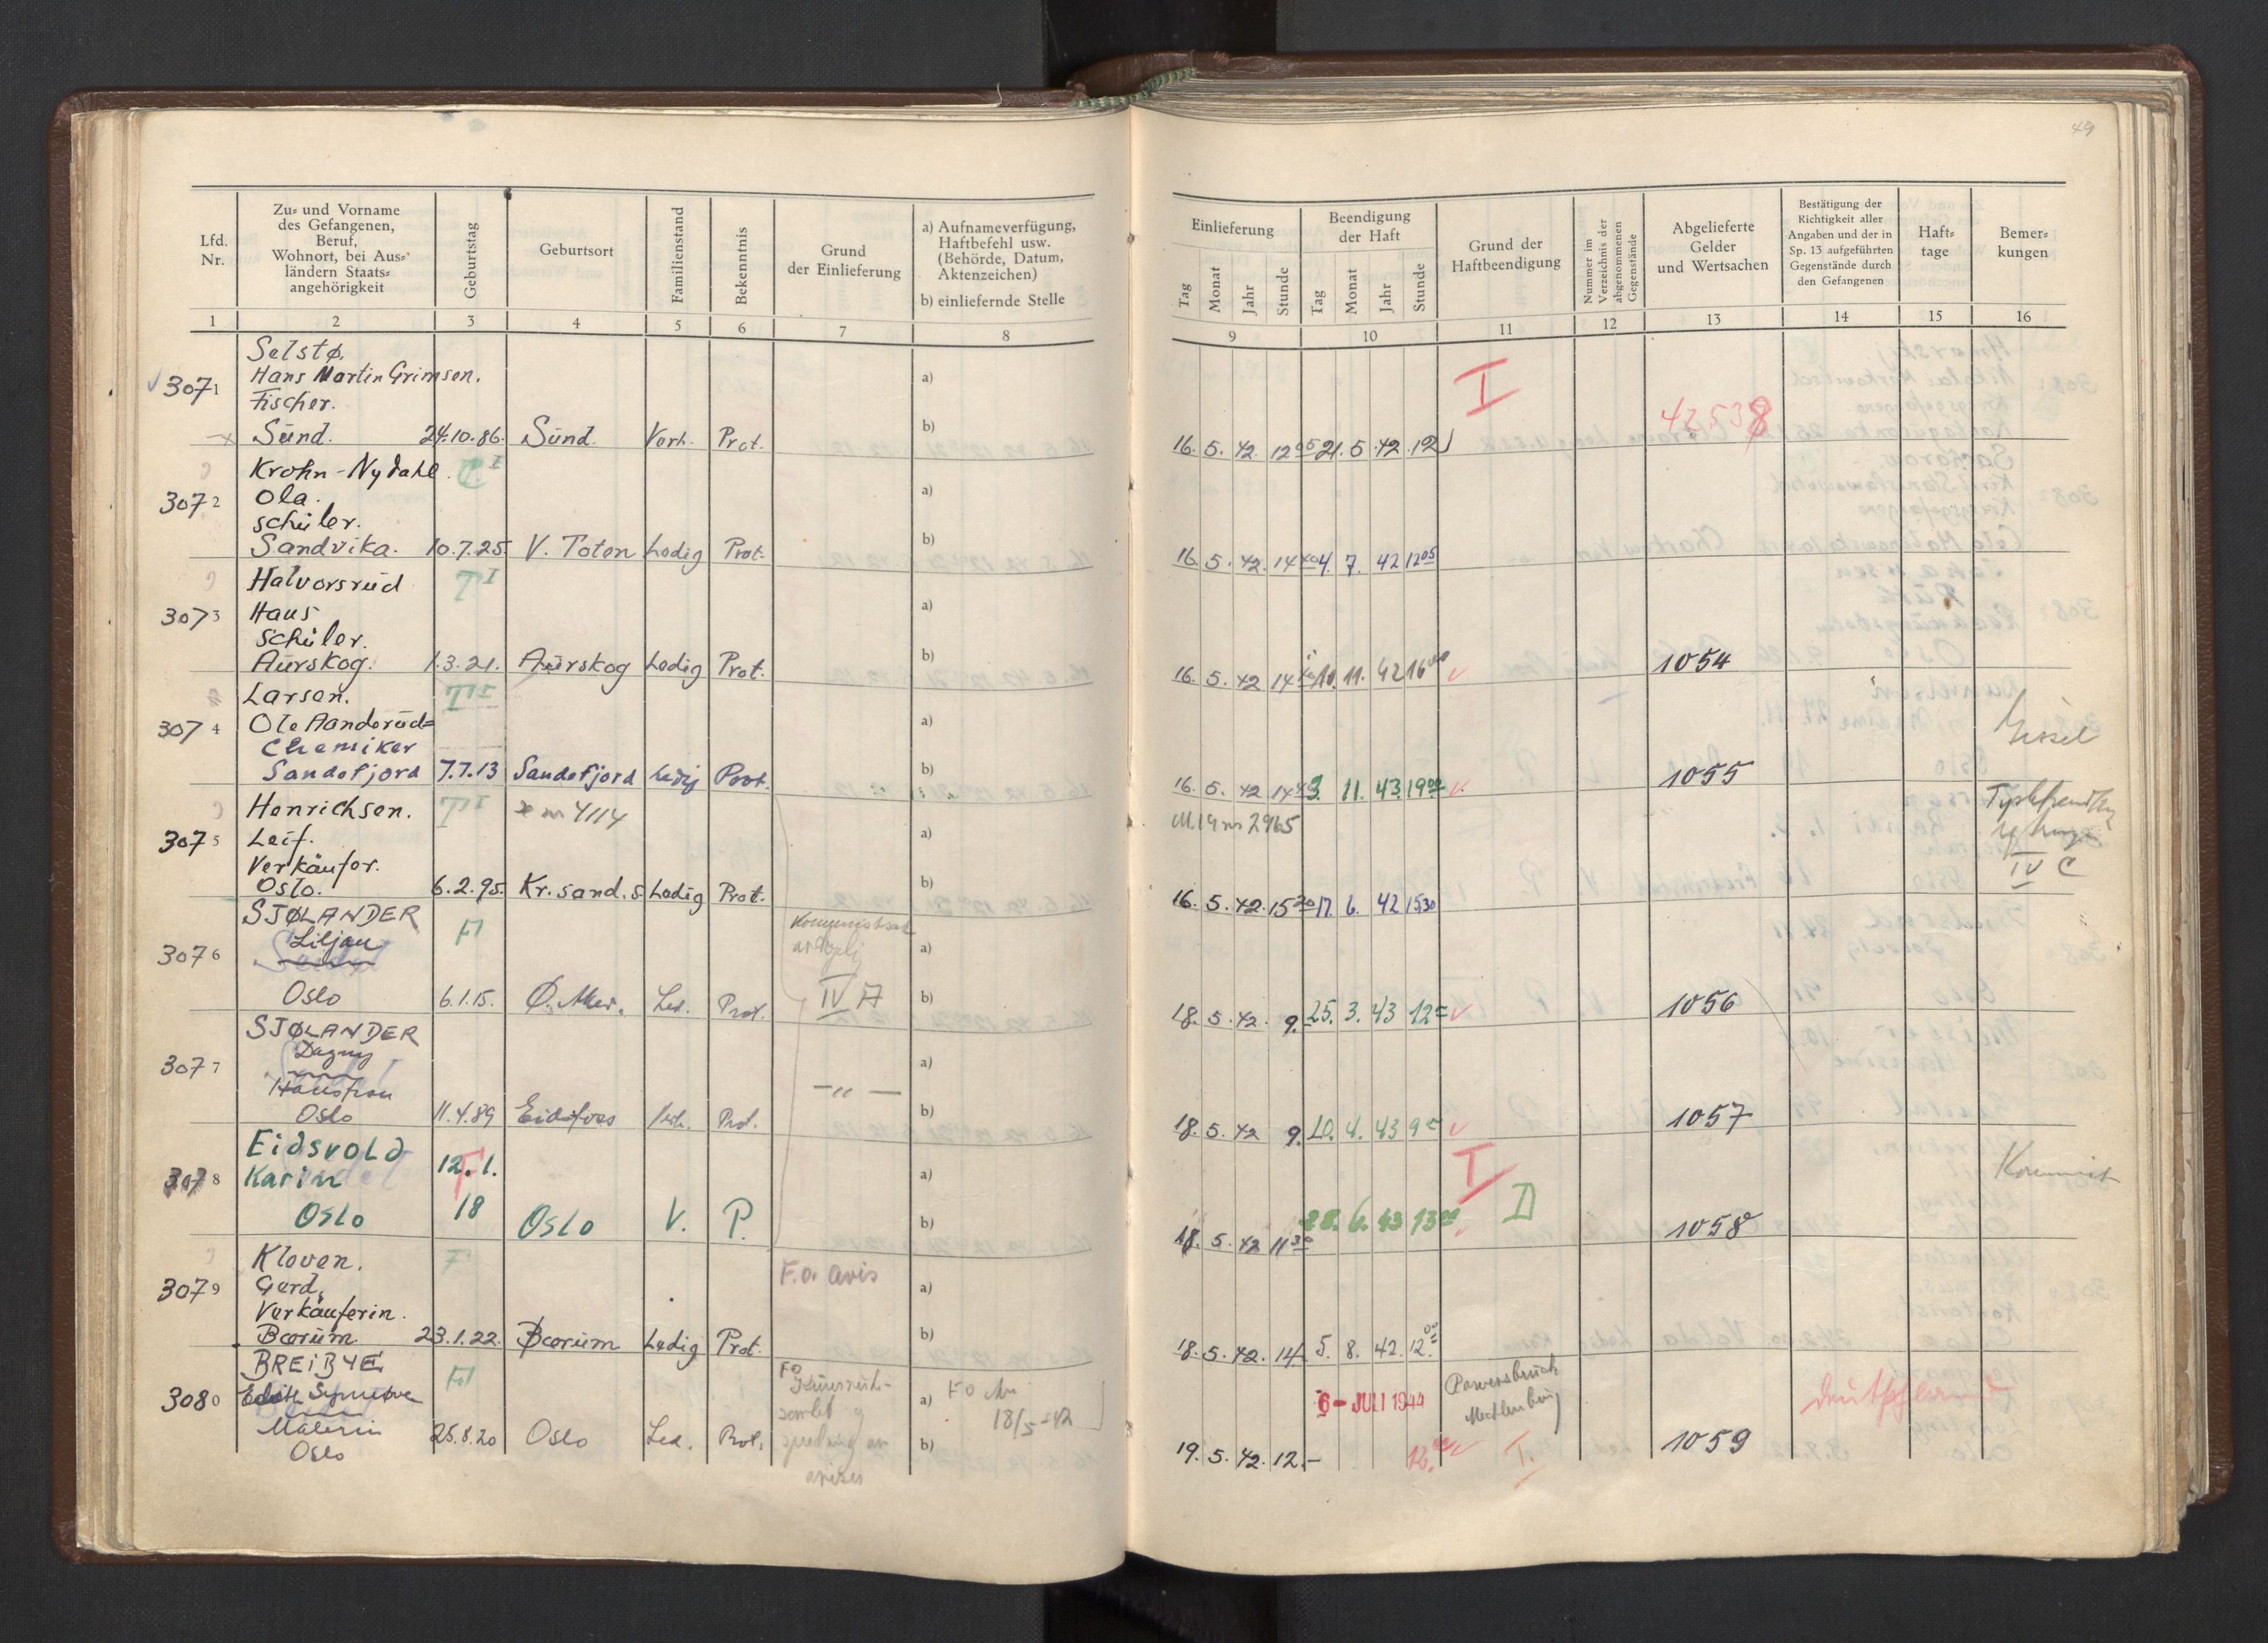 49
Lfd. Nr.
Zu= und Vorname
des Gefangenen,
Beruf,
Wohnort, bei Aus=
ländern Staats=
angehörigkeit
Geburtstag
Geburtsort
Familienstand
Bekenntnis
Grund
der Einlieferung
a) Aufnameverfügung,
Haftbefehl usw.
(Behörde, Datum,
Aktenzeichen)
b) einliefernde Stelle
Einlieferung
Tag Monat Jahr Stunde
Beendigung
der Haft
Tag Monat Jahr Stunde
Grund der
Haftbeendigung
Nummer im
Verzeichnis der
abgenommenen
Gegenstände
Abgelieferte
Gelder
und Wertsachen
Bestätigung der
Richtigkeit aller
Angaben und der in
Sp. 13 aufgeführten
Gegenstände durch
den Gefangenen
Haft=
tage
Bemer=
kungen
1 2 3 4 5 6 7 8 9 10 11 12 13 14 15 16
Selstø.
3071 Hans Martin Grimsen. a)
Fischer.
Sünd. 24.10.86. Sünd. Verh. Prot. b)
16. 5. 42. 12 05 21. 5. 42. 12
I
42538
Krohn-Nydahl. I
3072 Ola. a)
schüler.
Sandvika. 10.7.25. V. Toten Ledig Prot. b)
16. 5. 42. 14 4. 7. 42 12 05
Halvorsrüd I
3073 Hans a)
Schüler.
Aürskog. 1.3.21. Aürskog Ledig Prot. b)
16. 5. 42 14 10. 11. 42 16 00
1054
Larsen.
3074 Ole Aanderüd= a)
Chemiker
Sandefjord 7.7.13 Sandefjord Ledig Prot. b)
16. 5. 42 14 3. 11. 43. 19 00
1055
Gissel
Henrichsen. x nr 4114
3075 Leif. a)
Verkäufer.
Oslo. 6.2.95. Kr.sand.S Ledig Prot. b)
M.19 nr 2965
16. 5. 42. 15 30 17. 6. 42 15 30
IV C
SJØLANDER
3076 Liljan a)
Oslo 6.1.15. Ø. Aker. Led. Prot. IV A b)
18. 5. 42. 9. 25. 3. 43 12
1056
SJØLANDER
3077 Dagny a)
Hausfrau
Oslo 11.4.89 Eidsfoss Verh. Prot. — " — b)
18. 5. 42 9. 10. 4. 43 9
1057
Eidsvold
3078 Karin 12.1. a)
Oslo 18 Oslo V. P. b)
18. 5. 42 11 30 28. 6. 43 13 00
I
D
1058
Kloven. F
3079 Gerd. F.o. avis a)
Verkäuferin.
Bærüm. 23.1.22. Bærüm Ledig Prot. b)
18. 5. 42. 14 5. 8. 42. 12 00
BREiBYE
3080 Edith a) F O
18/5-42
Malerin
Oslo 25.8.20 Oslo Led. Prot. aviser b)
19. 5. 42. 12.-
6 - JULI 1944
Mecklenburg
I.
1059
Deutschland